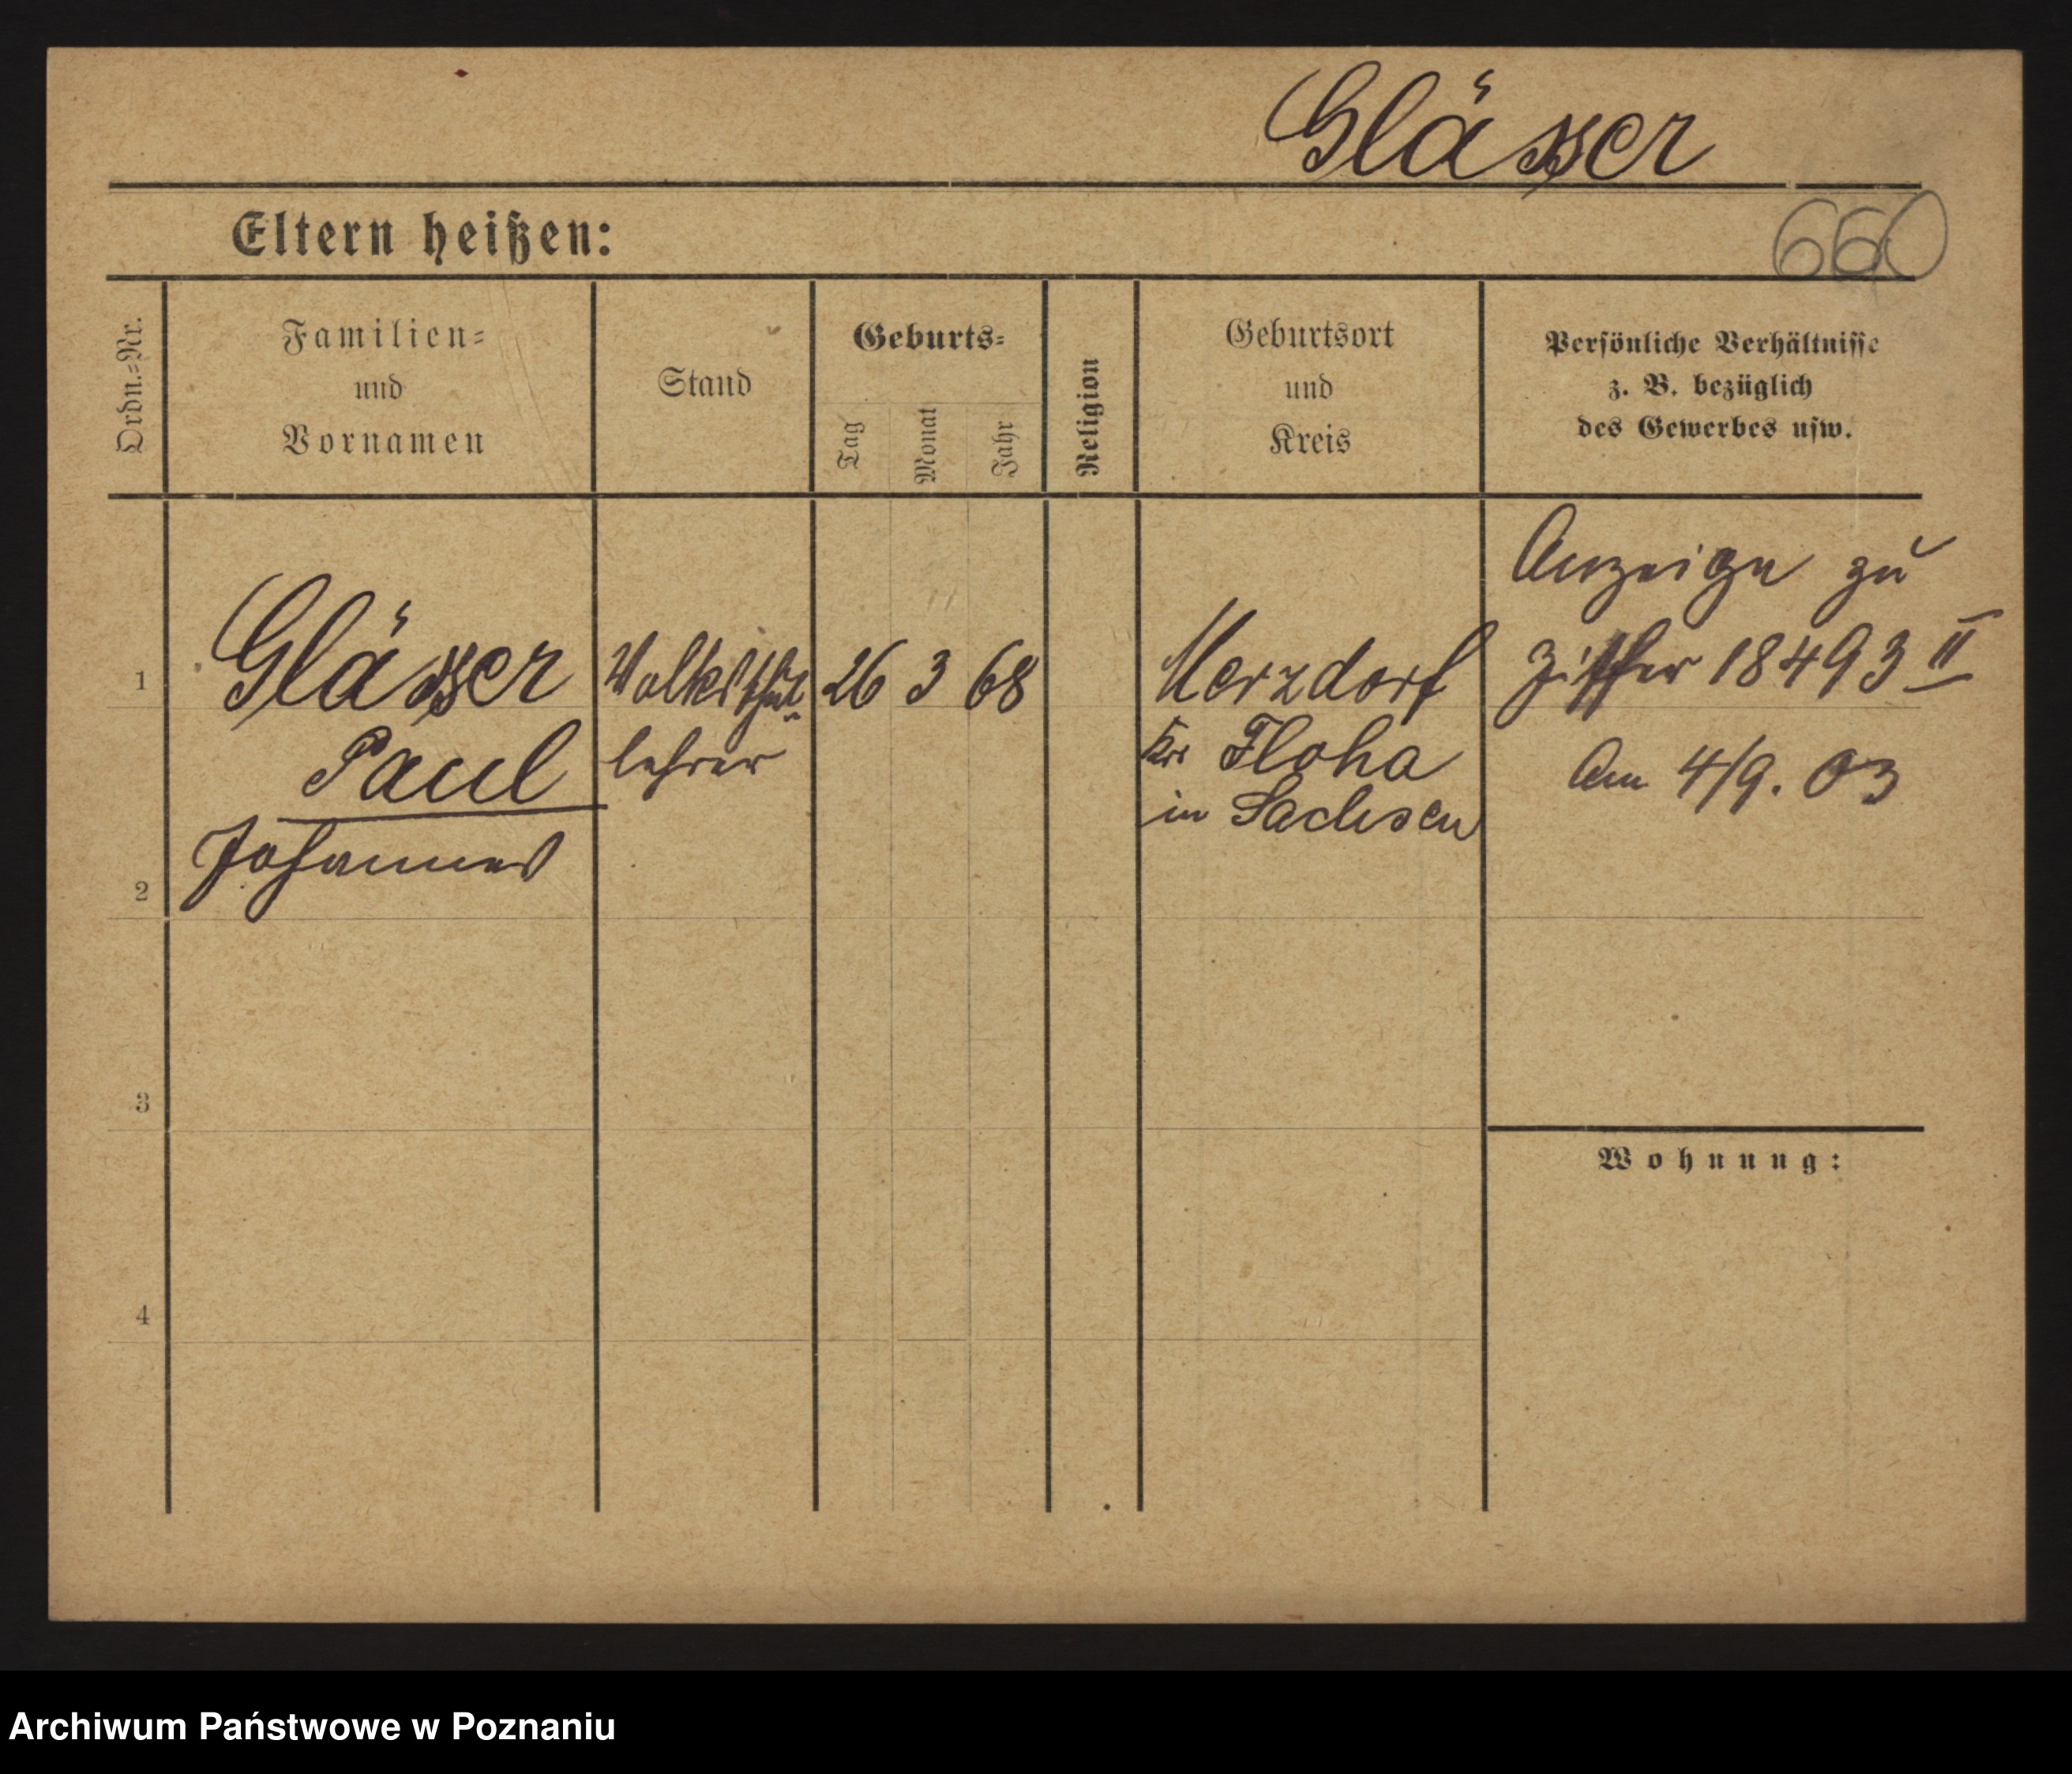 Glässer
Eltern heißen:
660
Ordn.=Nr.
Familien=
und
Vornamen
Stand
Geburts=
Tag
Monat
Jahr
Religion
Geburtsort
und
Kreis
Persönliche Verhältnisse
z. B. bezüglich
des Gewerbes usw.
1
Glässer
Paul
Johannes
Volksschul
lehrer
26 3 68
Merzdorf
Kr Floha
in Sachsen
Anzeige zu
Ziffer 18493 II
Am 4/9. 03
2
3
Wohnung:
4
Archiwum Państwowe w Poznaniu